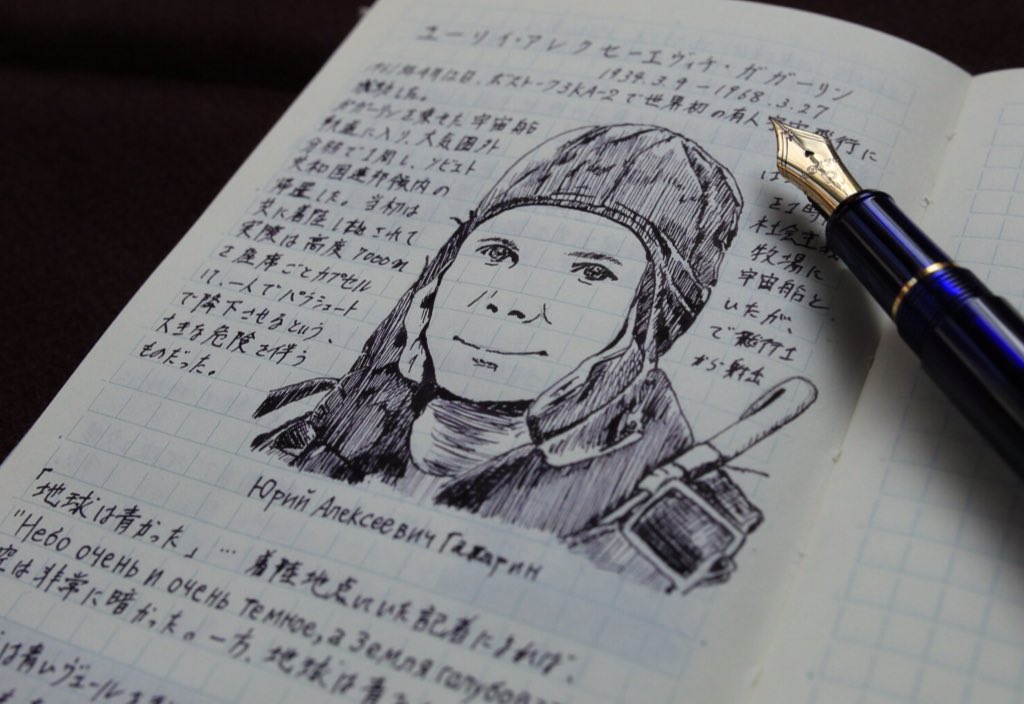 ユーリイ・アレクセーエヴィチ・ガガーリン
1934.3.9 - 1968.3.27
1961年4月12日、ボストーク3KA-2で世界初の有人宇宙飛行に
成功した。
ガガーリンを乗せた宇宙船
は
軌道に入り、大気圏外
を1周
を1周し、ソビエト
社会主義
共和国連邦領内の
牧場に
帰還した。当初は
宇宙船と
共に着陸したとされて
いたが、
実際は高度7000m
で飛行士
を座席ごとカプセル
から射出
し、一人でパラシュート
で降下させるという、
大きな危険を伴う
ものだった。
Юрий Алексеевич Гагарин
「地球は青かった」… 着陸地点にいた記者によれば、
"Небо очень и очень темное, а Земля голубова
空は非常に暗かった。一方、地球は青
は青いヴェールを